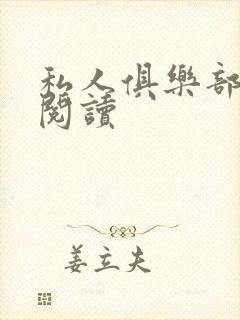 私人俱樂部
閱讀
姜立夫